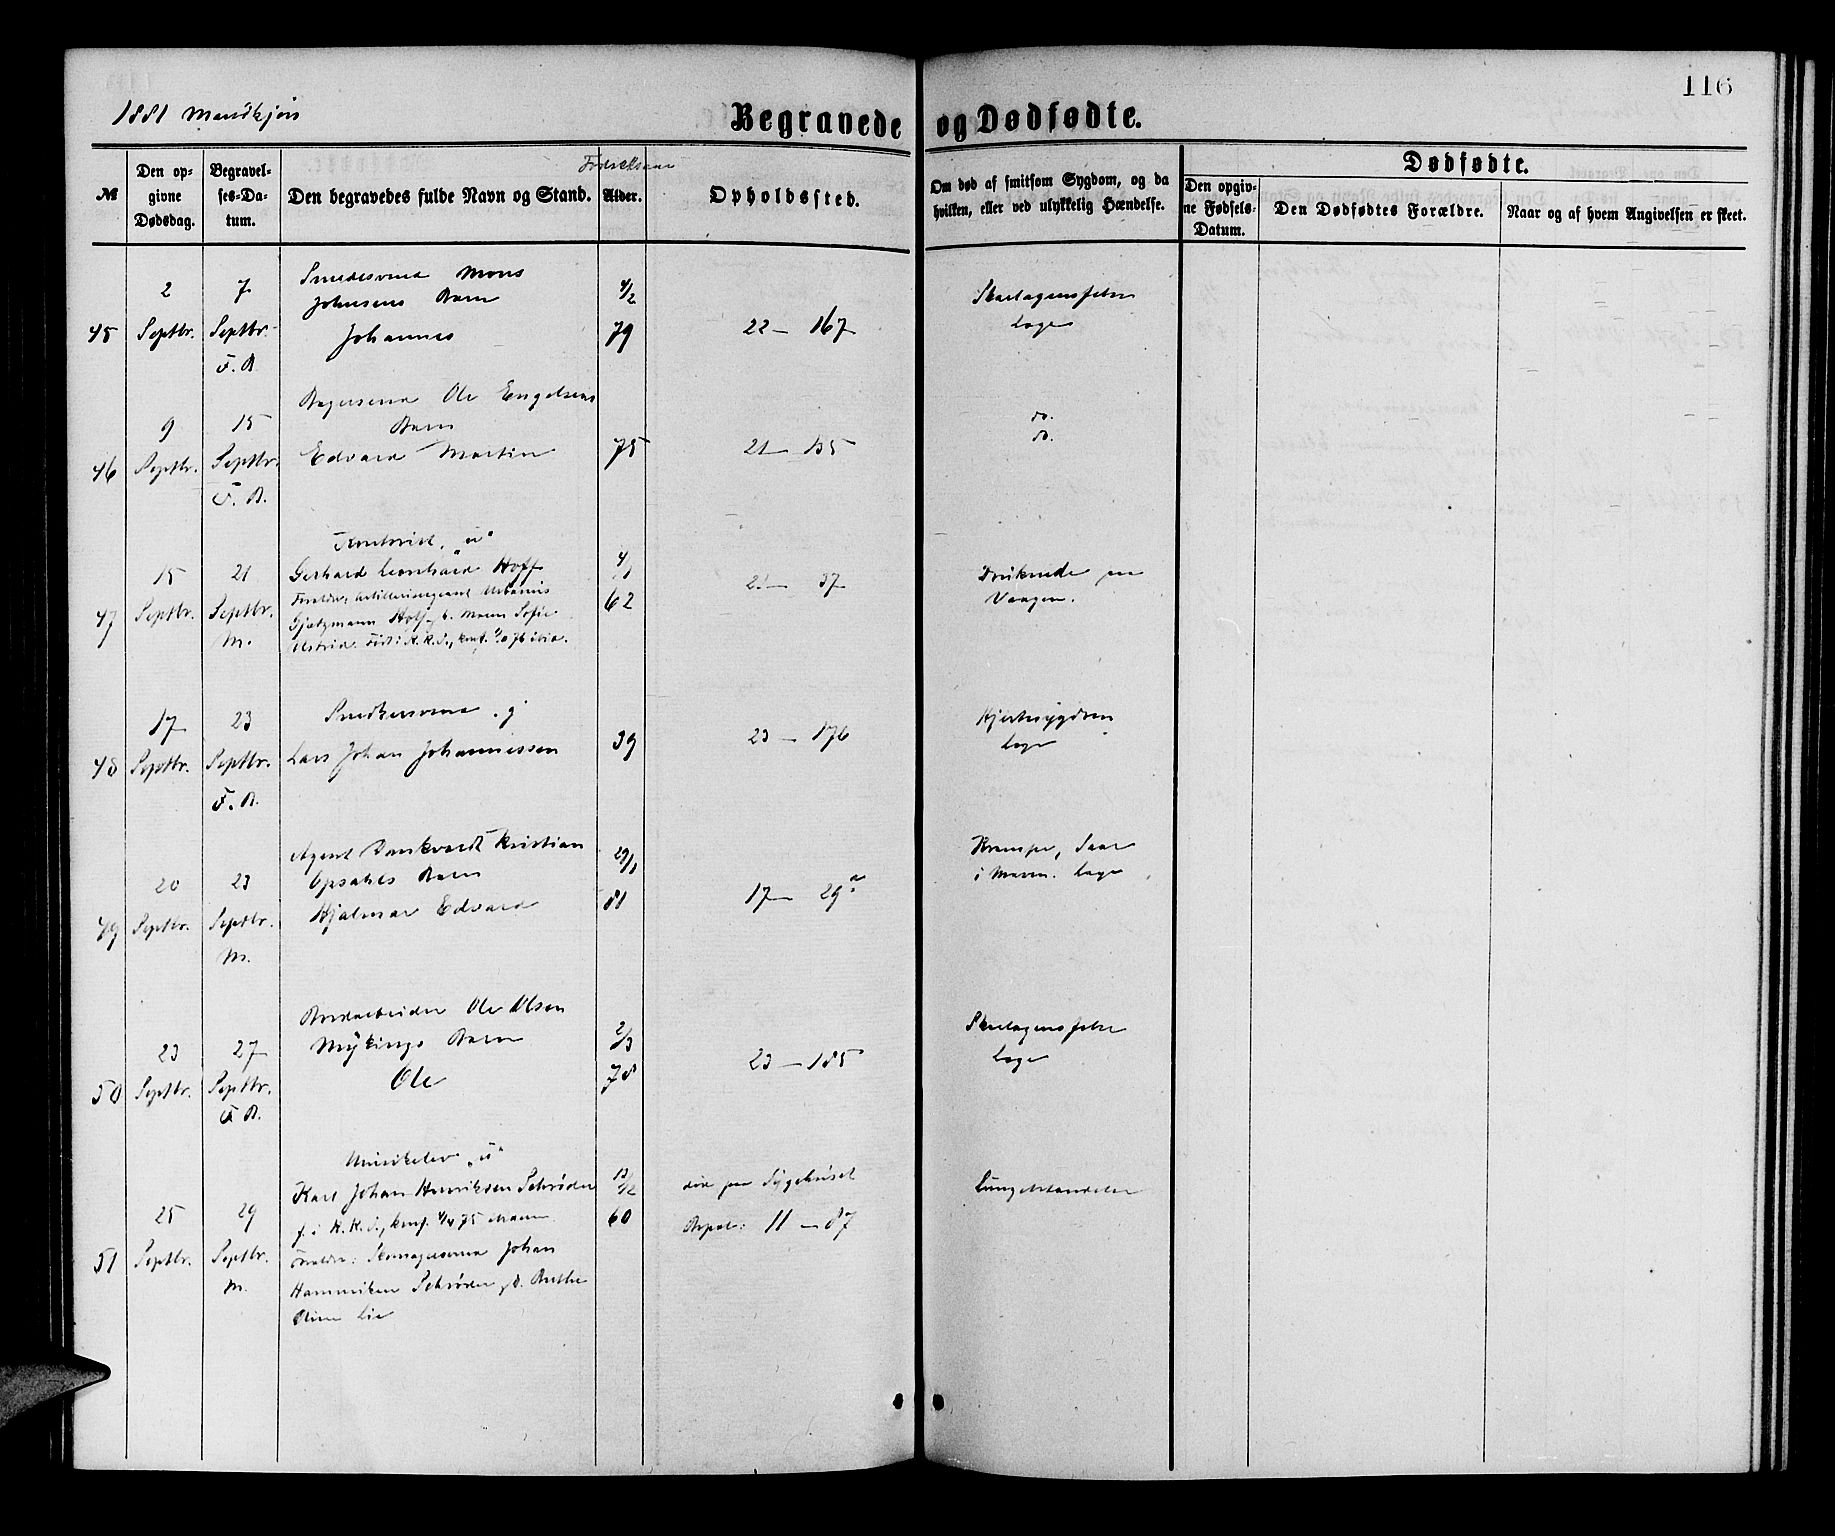 116
1881 Mandkjøn
Begravede og Dødfødte.
Fødselsaar
№
Den opgivne Dødsdag.
Begravelses-Datum.
Den begravedes fulde Navn og Stand.
Alder.
Opholdssted.
Om død af smitsom Sygdom, og da hvilken, eller ved ulykkelig Hændelse.
Dødfødte.
Den opgivne Fødsels-Datum.
Den Dødfødtes Forældre.
Naar og af hvem Angivelsen er skeet.
45
2
Septbr.
7
Septbr.
F. B.
Smedesvend Mons
Johnsens Barn
Johannes
4/2
79
22 — 167
Skarlagensfeber
Læge
46
9
Septbr.
15
Septbr.
F. B.
Bagersvend Ole Engelsens
Barn
Edvard Martin
75
21 — 135
do.
do.
47
15
Septbr.
21
Septbr.
M.
Kontorist, "u"
Gerhard Leonhard Hoff
62
37
Druknede paa
Vaagen.
48
17
Septbr.
23
Septbr.
F. B.
Snedkersvend. g
Lars Johan Johannessen
39
23 — 176
Hjertesygdom
Læge
49
20
Septbr.
23
Septbr.
M.
Agent Dankvardt Kristian
Opsahls Barn
Hjalmar Edvard
29/1
81
17 — 29a
Krampe, Saar
i Maven. Læge
50
23
Septbr.
27
Septbr.
F. B.
Ole Olsen
Mykings Barn
Ole
2/3
78
23 — 185
Skarlagensfeber
Læge
51
25
Septbr.
29
Septbr.
M.
Musikelev "u"
Karl Johan Henriksen Schrøder
f. i K. K. d., konf. 4/4 75
Forældre: Skomagersvend Johan
Schrøder og Berthe
Oline Lie
13/12
60
død paa Sygehuset
Bopæl: 11 — 87
Lungebetændelse